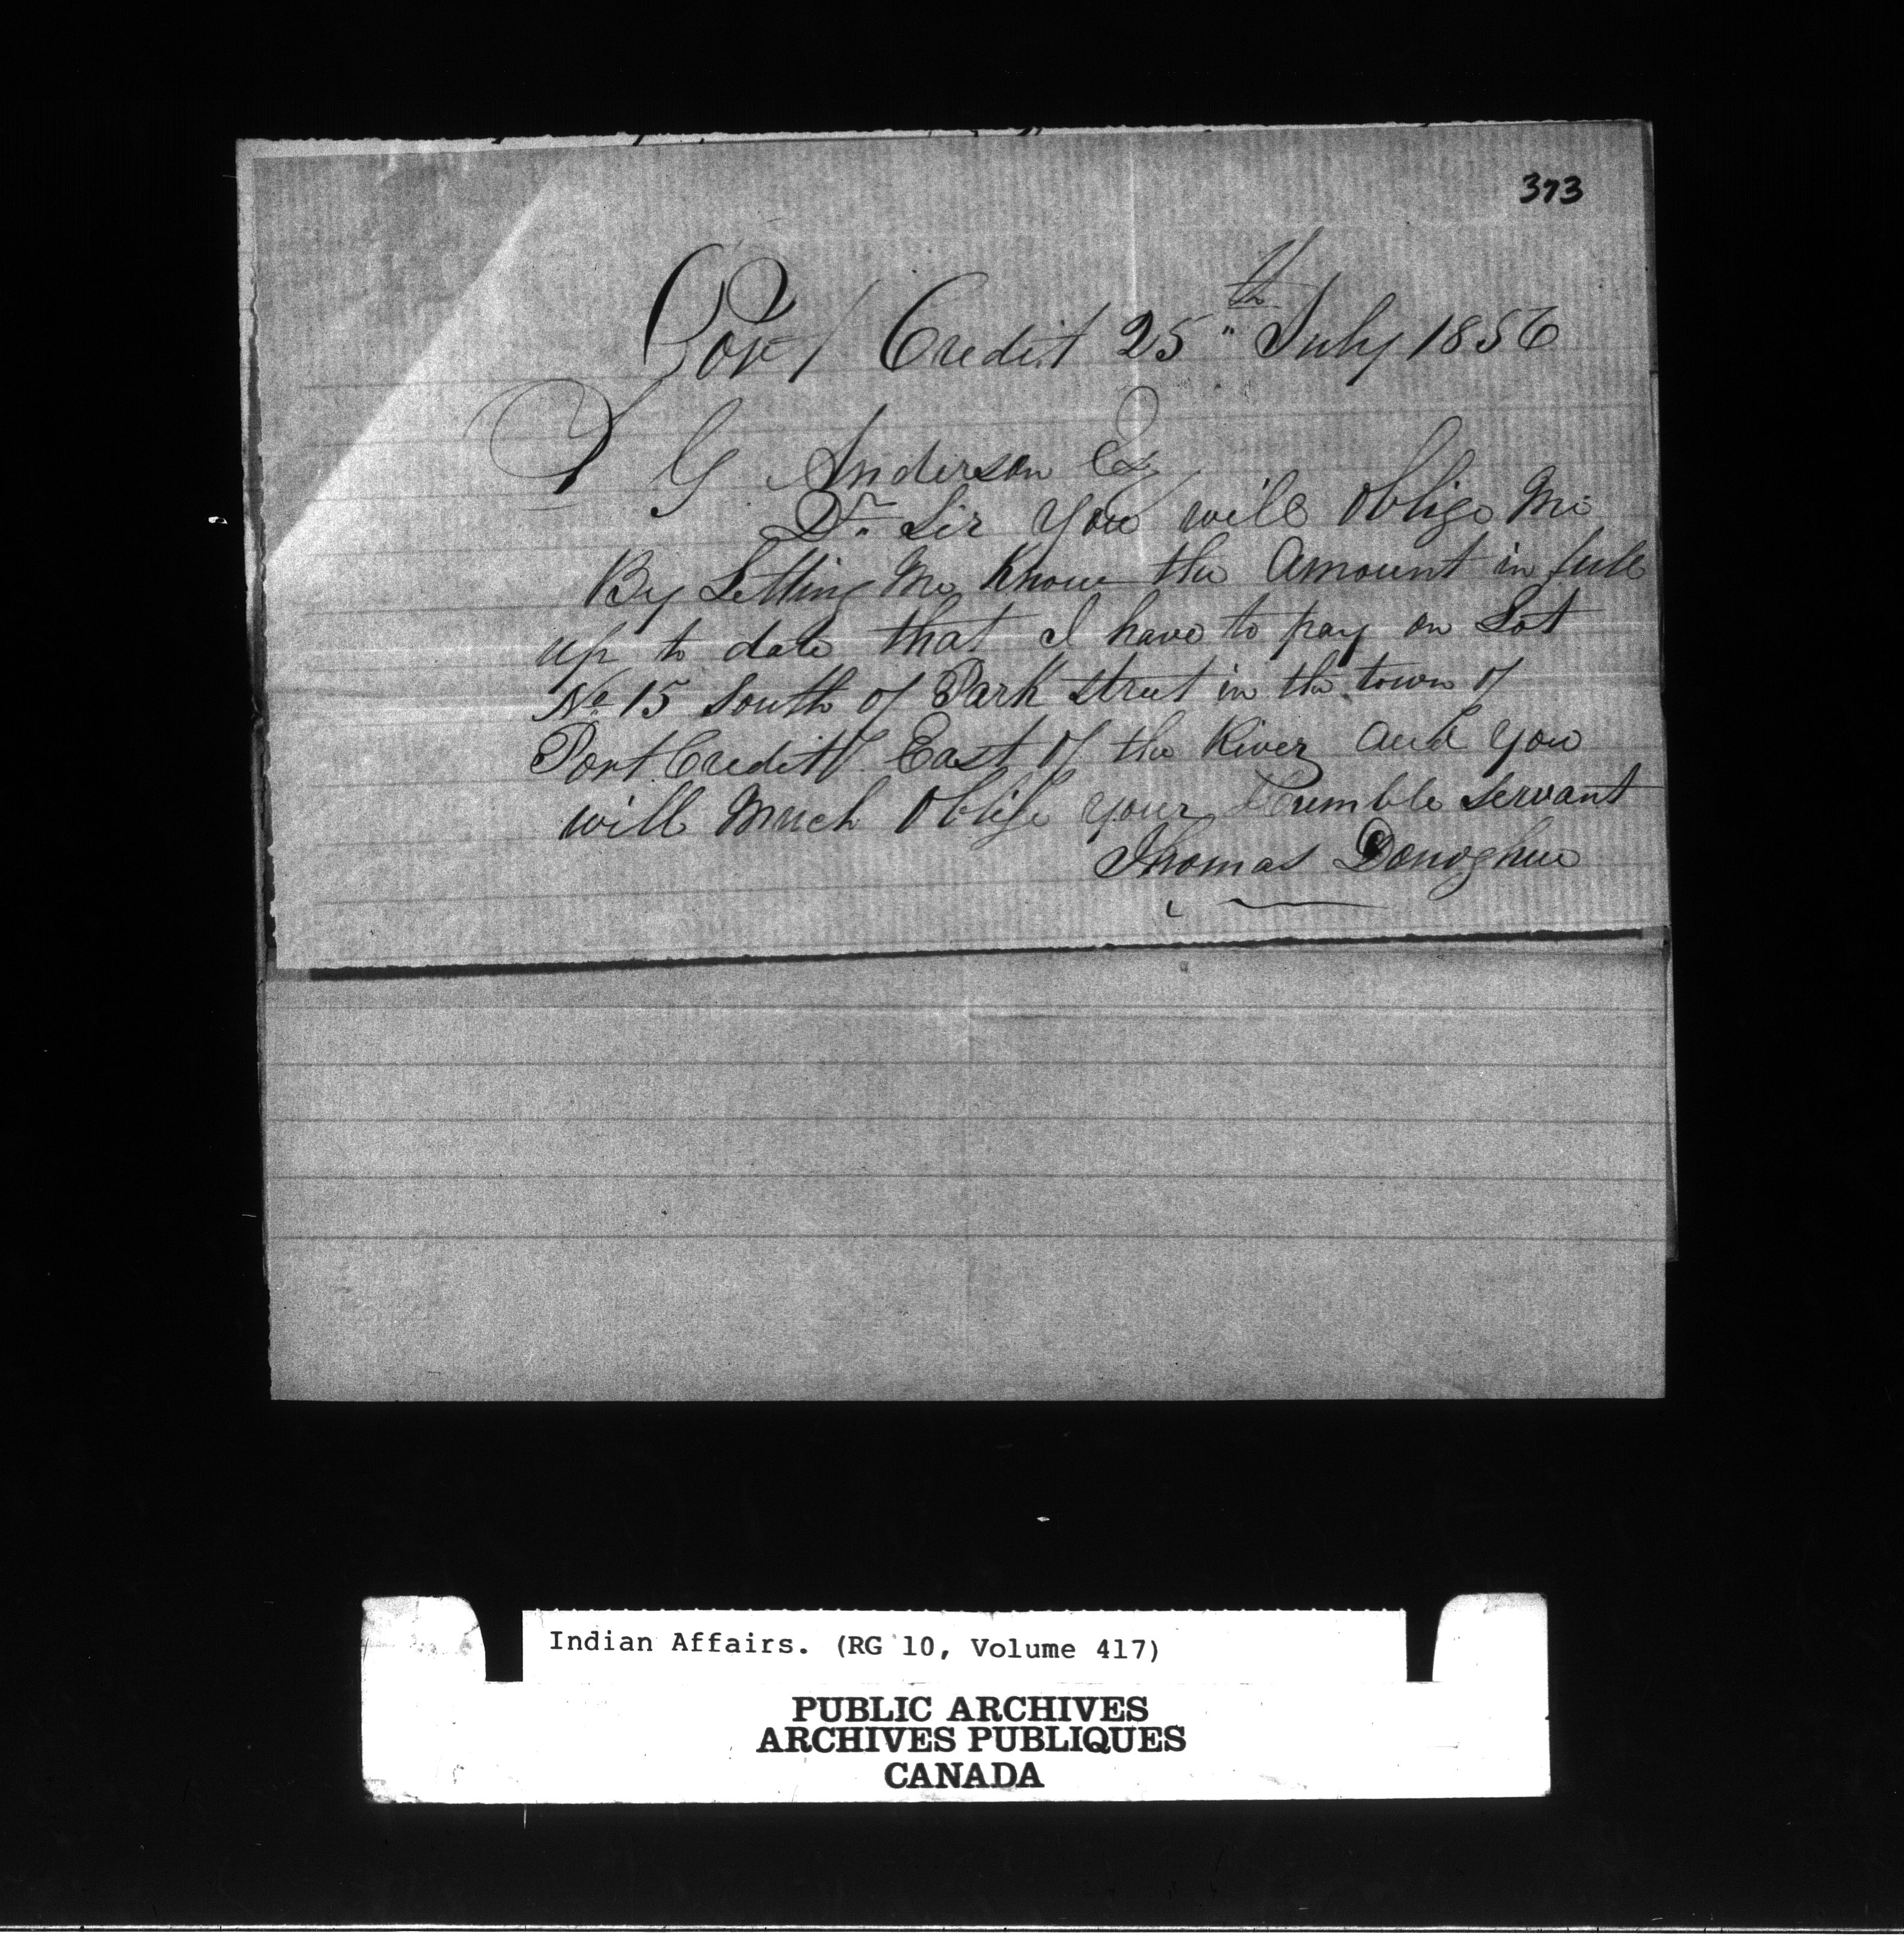 373
Port Credit 25th July 1856
T G Anderson Esq
Dr Sir You will oblige Me
By Letting Me Know the Amount in full
up to date that I have to pay on Lot
No 15 South of Park street in the town of
Port Credit East of the River And you
will Much oblige your humble servant
Thomas Donoghue
Indian Affairs. (RG 10, Volume 417)
PUBLIC ARCHIVES
ARCHIVES PUBLIQUES
CANADA